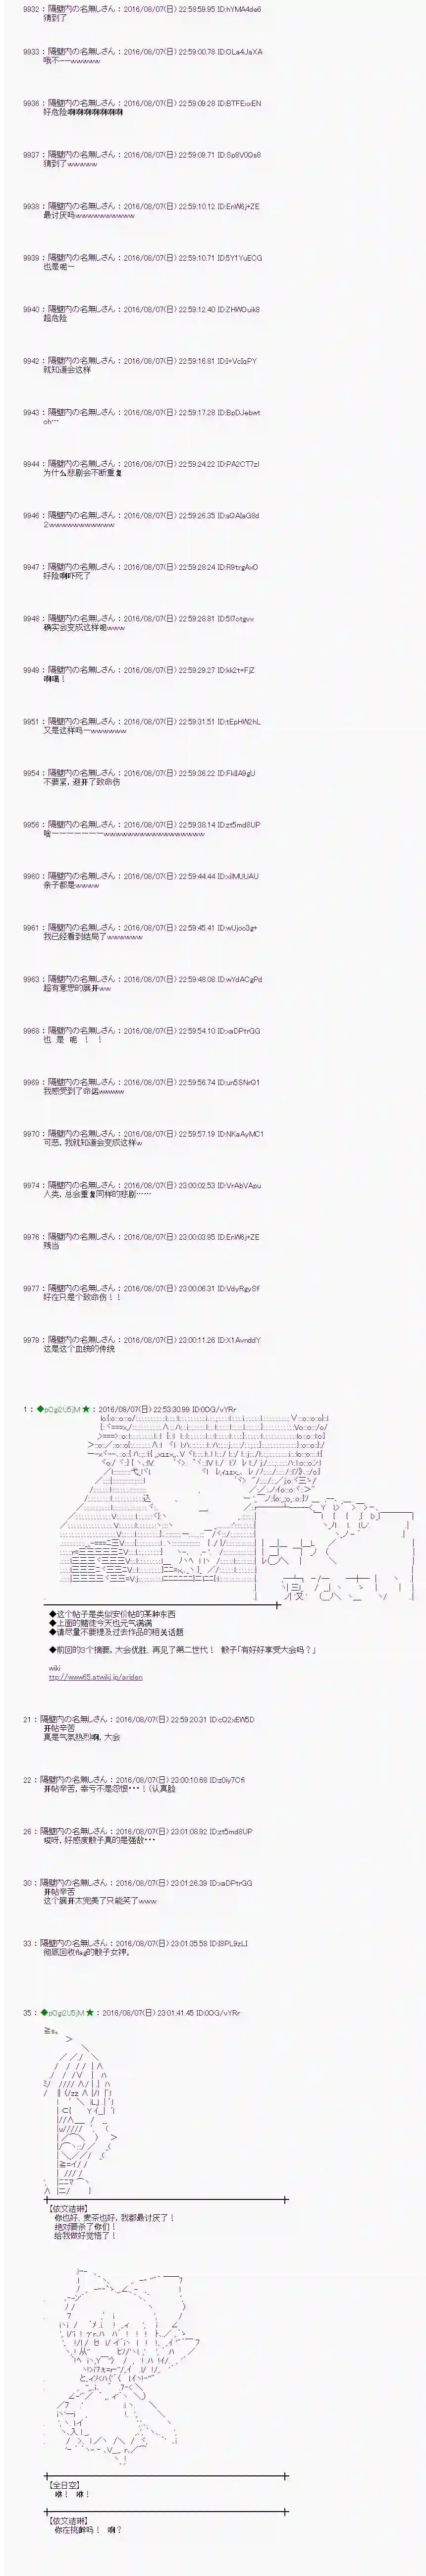 9932 : 隔壁内の名無しさん : 2016/08/07(日) 22:58:59.95 ID:hYMA4de6
猜到了
9933 : 隔壁内の名無しさん : 2016/08/07(日) 22:59:00.78 ID:OLa4JaXA
哦不——wwwww
9936 : 隔壁内の名無しさん : 2016/08/07(日) 22:59:09.28 ID:BTFExxEN
好危险啊啊啊啊啊啊啊
9937 : 隔壁内の名無しさん : 2016/08/07(日) 22:59:09.71 ID:Sp8V0Qs8
猜到了wwwww
9938 : 隔壁内の名無しさん : 2016/08/07(日) 22:59:10.12 ID:EnW6j+ZE
最讨厌吗wwwwwwwwww
9939 : 隔壁内の名無しさん : 2016/08/07(日) 22:59:10.71 ID:5Y1YuECG
也是呢ー
9940 : 隔壁内の名無しさん : 2016/08/07(日) 22:59:12.40 ID:ZHWOuik8
超危险
9942 : 隔壁内の名無しさん : 2016/08/07(日) 22:59:16.81 ID:I+VcIqPY
就知道会这样
9943 : 隔壁内の名無しさん : 2016/08/07(日) 22:59:17.28 ID:BpDJebwt
oh…
9944 : 隔壁内の名無しさん : 2016/08/07(日) 22:59:24.22 ID:PA2CT7zl
为什么悲剧会不断重复
9946 : 隔壁内の名無しさん : 2016/08/07(日) 22:59:26.35 ID:sQAIaG8d
2wwwwwwwwwww
9947 : 隔壁内の名無しさん : 2016/08/07(日) 22:59:28.24 ID:R9trgAx0
好险啊吓死了
9948 : 隔壁内の名無しさん : 2016/08/07(日) 22:59:28.81 ID:5I7otgvv
确实会变成这样呢www
9949 : 隔壁内の名無しさん : 2016/08/07(日) 22:59:29.27 ID:kk2t+FjZ
啊噶！
9951 : 隔壁内の名無しさん : 2016/08/07(日) 22:59:31.51 ID:tEpHW2hL
又是这样吗ーwwwwww
9954 : 隔壁内の名無しさん : 2016/08/07(日) 22:59:36.22 ID:FkIIA9gU
不要紧，避开了致命伤
9956 : 隔壁内の名無しさん : 2016/08/07(日) 22:59:38.14 ID:zt5md8UP
啥ーーーーーーーwwwwwwwwwwwwwwwww
9960 : 隔壁内の名無しさん : 2016/08/07(日) 22:59:44.44 ID:xilMUUAU
亲子都是wwww
9961 : 隔壁内の名無しさん : 2016/08/07(日) 22:59:45.41 ID:wUjoo3g+
我已经看到结局了wwwwww
9963 : 隔壁内の名無しさん : 2016/08/07(日) 22:59:48.08 ID:wYdACgPd
超有意思的展开ww
9968 : 隔壁内の名無しさん : 2016/08/07(日) 22:59:54.10 ID:xaDPtrGG
也 是 呢 ！ ！
9969 : 隔壁内の名無しさん : 2016/08/07(日) 22:59:56.74 ID:un5SNrQ1
我感受到了命运wwwww
9970 : 隔壁内の名無しさん : 2016/08/07(日) 22:59:57.19 ID:NKaAyMC1
可恶，我就知道会变成这样w
9974 : 隔壁内の名無しさん : 2016/08/07(日) 23:00:02.53 ID:VrAbVApu
人类，总会重复同样的悲剧……
9976 : 隔壁内の名無しさん : 2016/08/07(日) 23:00:03.95 ID:EnW6j+ZE
残当
9977 : 隔壁内の名無しさん : 2016/08/07(日) 23:00:06.31 ID:VdyRgySf
好在只是个致命伤！！
9979 : 隔壁内の名無しさん : 2016/08/07(日) 23:00:11.26 ID:X1AvnddY
这是这个血统的传统
1 : ◆pOgi2U5jM ★ : 2016/08/07(日) 22:53:30.99 ID:0OG/vYRr
◆这个帖子是类似安价帖的某种东西
◆上面的赌徒今天也元气满满
◆请尽量不要提及过去作品的相关话题
◆前回的3个摘要，大会优胜，再见了第二世代！ 骰子「有好好享受大会吗？」
wiki
ttp://www65.atwiki.jp/ariden
21 : 隔壁内の名無しさん : 2016/08/07(日) 22:59:20.31 ID:cQ2xEW5D
开帖辛苦
真是气氛热烈啊，大会
22 : 隔壁内の名無しさん : 2016/08/07(日) 23:00:10.68 ID:z0iy7Cfi
开帖辛苦，幸亏不是怨恨・・・！（认真脸
26 : 隔壁内の名無しさん : 2016/08/07(日) 23:01:08.92 ID:zt5md8UP
哎呀，好感度骰子真的是强敌・・・
30 : 隔壁内の名無しさん : 2016/08/07(日) 23:01:26.39 ID:xaDPtrGG
开帖辛苦
这个展开太完美了只能笑了www
33 : 隔壁内の名無しさん : 2016/08/07(日) 23:01:35.58 ID:I8PL9zLI
彻底回收flag的骰子女神。
35 : ◆pOgi2U5jM ★ : 2016/08/07(日) 23:01:41.45 ID:0OG/vYRr
【依文洁琳】
你也好，麦茶也好，我都最讨厌了！
绝对要杀了你们！
给我做好觉悟了！
【全日空】
咻！ 咻！
【依文洁琳】
你在挑衅吗！ 啊？